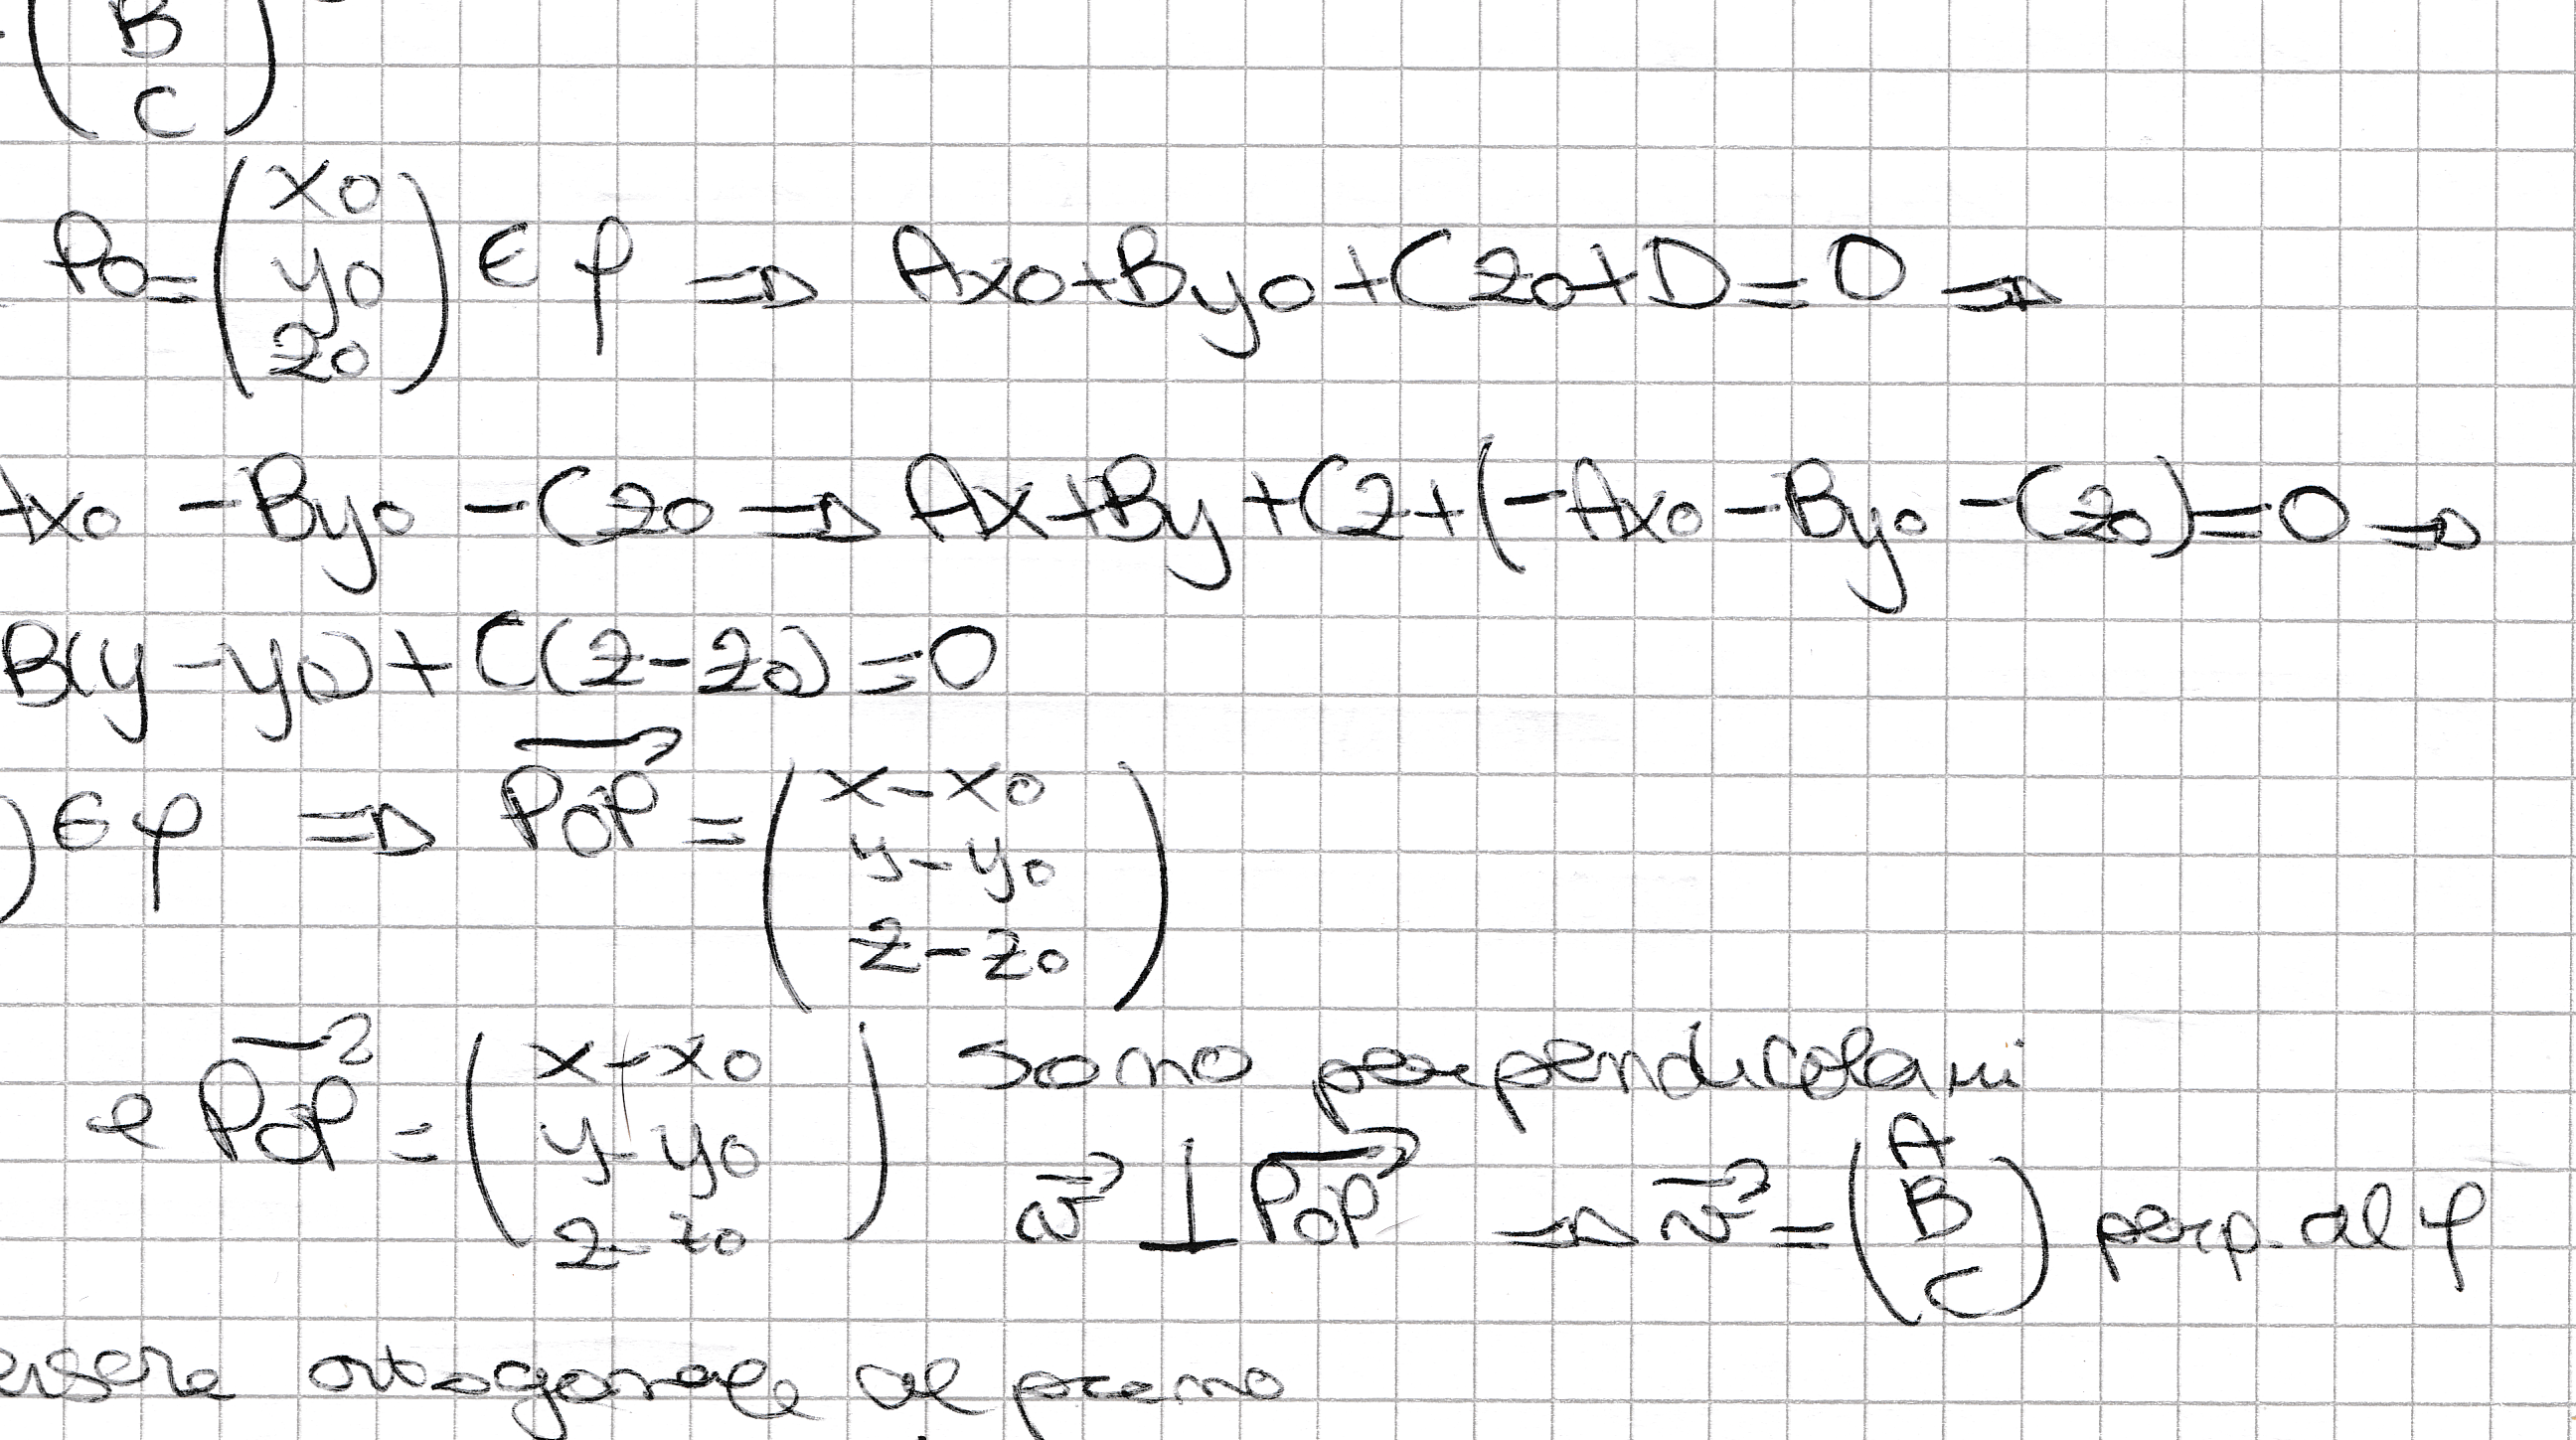 (B
C)
P₀ = (x₀ y₀ z₀) ∈ φ ⇒ Ax₀+By₀+Cz₀+D=0 ⇒
Ax₀ -By₀ -Cz₀ ⇒ Ax+By+Cz+(-Ax₀-By₀-Cz₀)=0 ⇒
B(y-y₀)+C(z-z₀)=0
) ∈ φ ⇒ P₀P⃗ = (x-x₀ y-y₀ z-z₀)
e P₀P⃗ = (x-x₀ y-y₀ z-z₀) sono perpendicolari
v⃗ ⊥ P₀P⃗ ⇒ v⃗ = (A B C) perp. al φ
ortogonale al piano